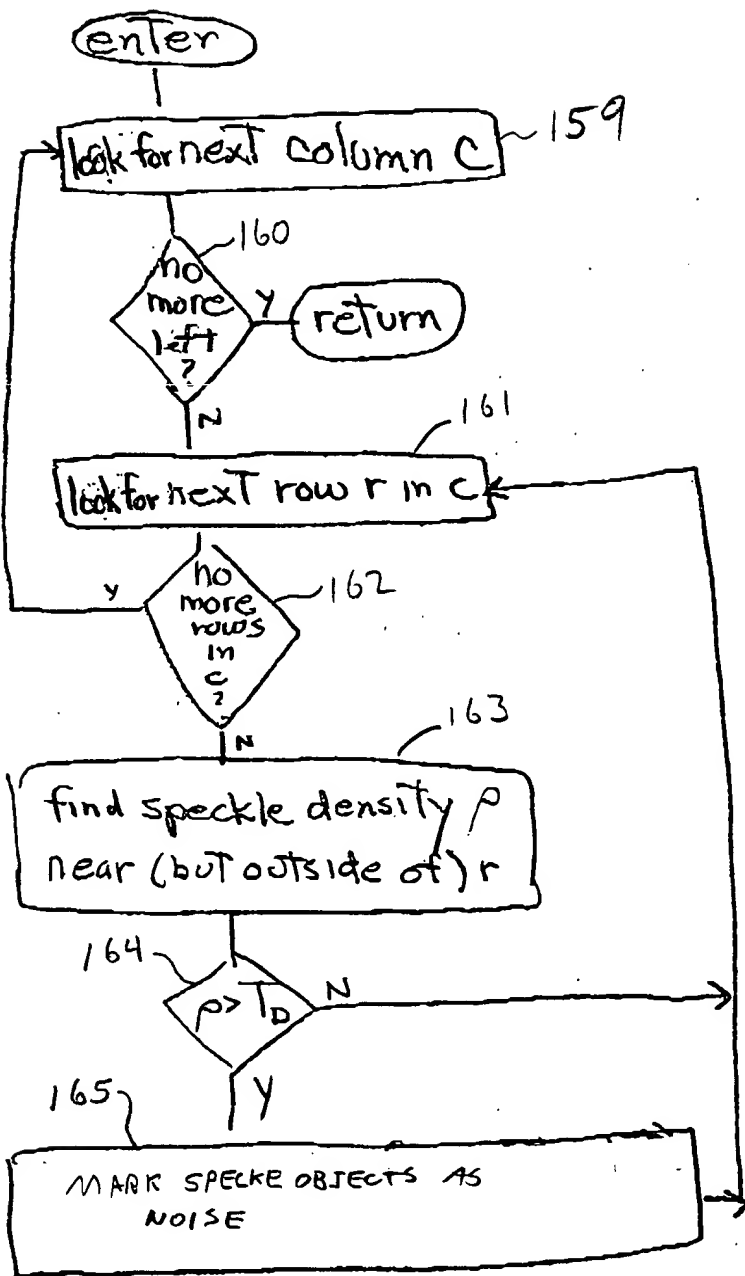 enter
look for next column C
159
160
no
more
left
?
Y
return
N
161
look for next row r in c
no
more
rows
in
c
?
Y
162
N
163
find speckle density ρ
near (but outside of) r
164
ρ > T_D
N
Y
165
MARK SPECKE OBJECTS AS
NOISE